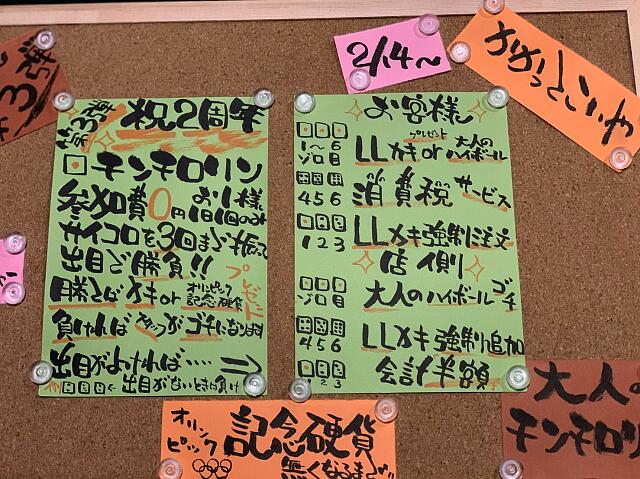 第3弾
2/14〜
第3弾
祝2周年
チンチロリン
参加費0円 お1人様1日1回のみ
サイコロを3回まで振って
出目で勝負!!
プレゼント
勝てばメキor オリンピック記念硬貨
負ければスタッフがゴチになります
出目がよければ‥‥⇒
出目がないときは負け
お客様
1〜6
ゾロ目
プレゼント
LLメキor大人のハイボール
456
消費税サービス
123
LLメキ強制注文
店側
ゾロ目
大人のハイボールゴチ
456
LLメキ強制追加
123
会計半額
オリンピック
記念硬貨
無くなるまで
大人の
チンチロリ